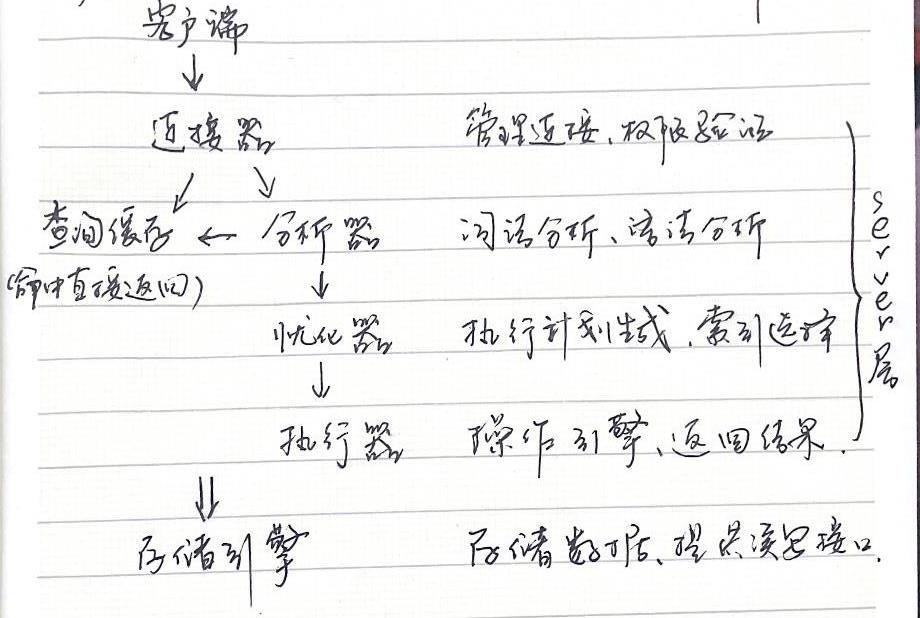 客户端
连接器 管理连接、权限验证
查询缓存 分析器 词法分析、语法分析
(命中直接返回)
优化器 执行计划生成、索引选择
执行器 操作引擎、返回结果.
server层
存储引擎 存储数据、提供读写接口.